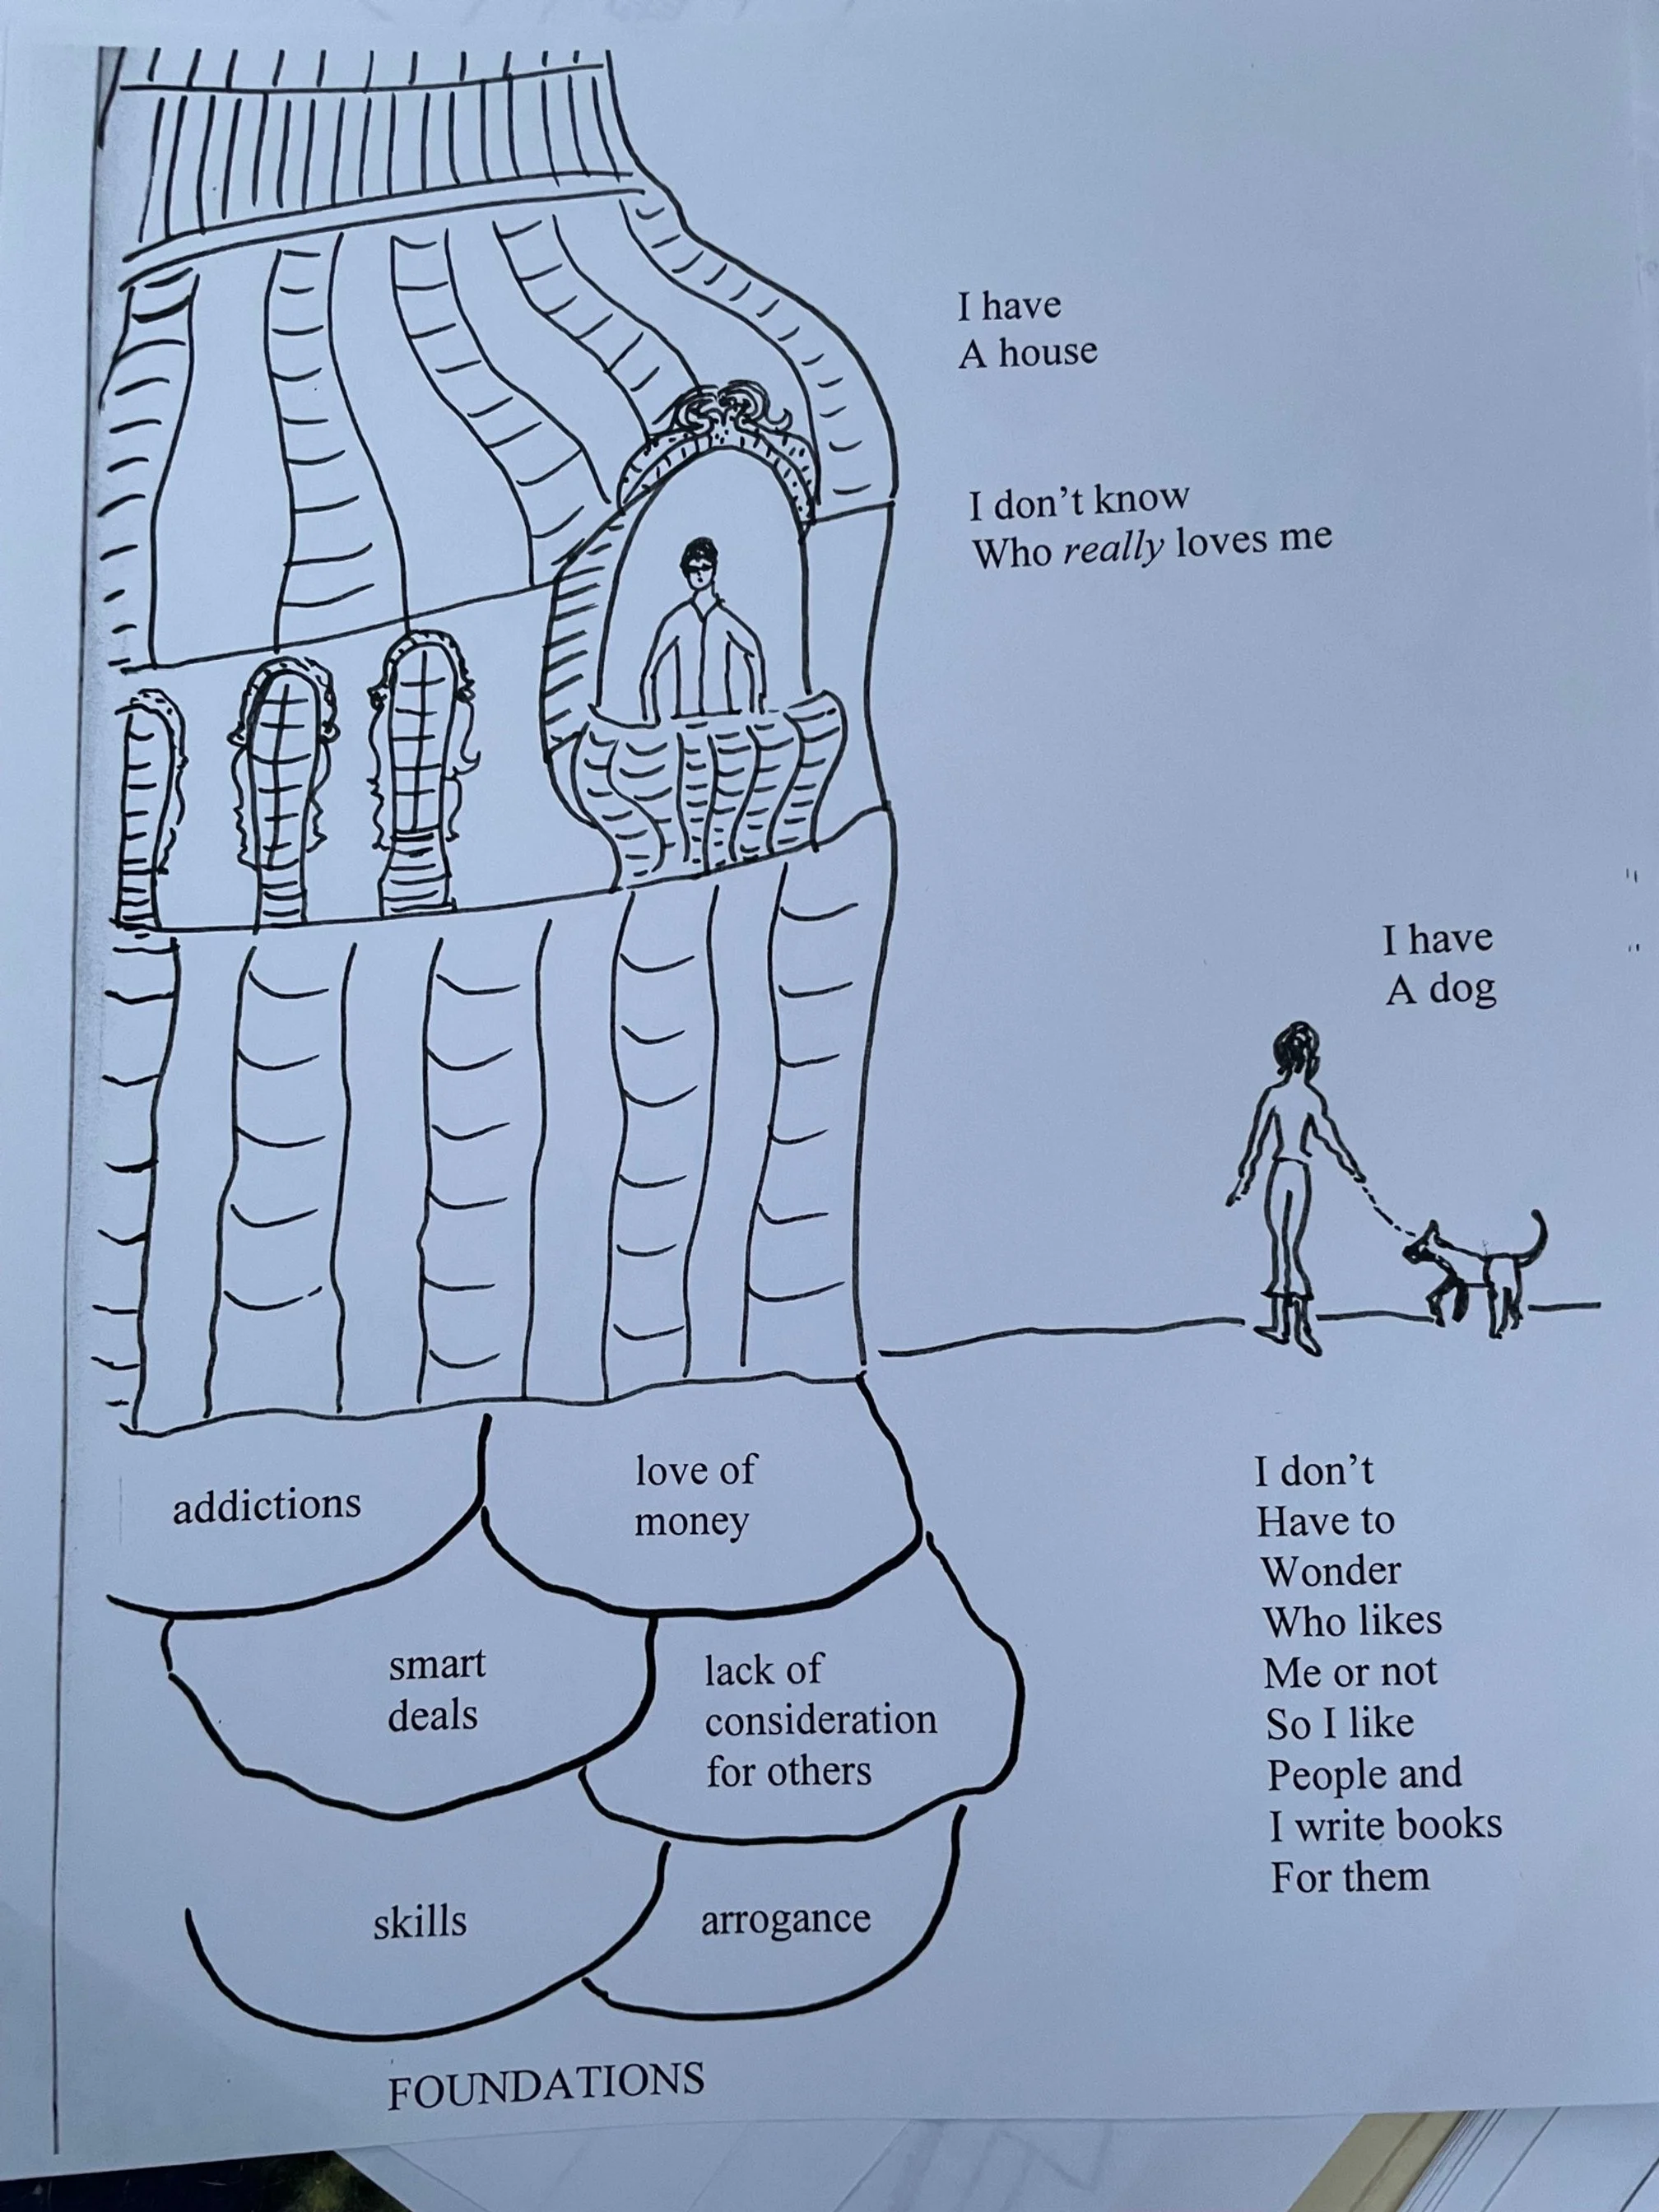 I have
A house
I don't know
Who really loves me
I have
A dog
addictions
love of
money
smart
deals
lack of
consideration
for others
skills
arrogance
FOUNDATIONS
I don't
Have to
Wonder
Who likes
Me or not
So I like
People and
I write books
For them